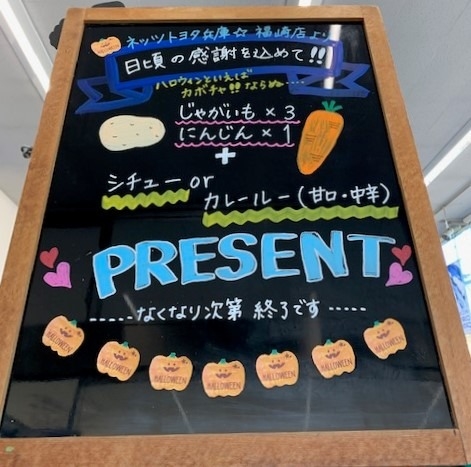 ネッツトヨタ兵庫☆福崎店より
日頃の感謝を込めて!!
ハロウィンといえば
カボチャ!! ならぬ....
じゃがいも×3
にんじん×1
+
シチュー or
カレールー(甘口・中辛)
PRESENT
-----なくなり次第 終了です-----
HALLOWEEN
HALLOWEEN
HALLOWEEN
HALLOWEEN
HALLOWEEN
HALLOWEEN
HALLOWEEN